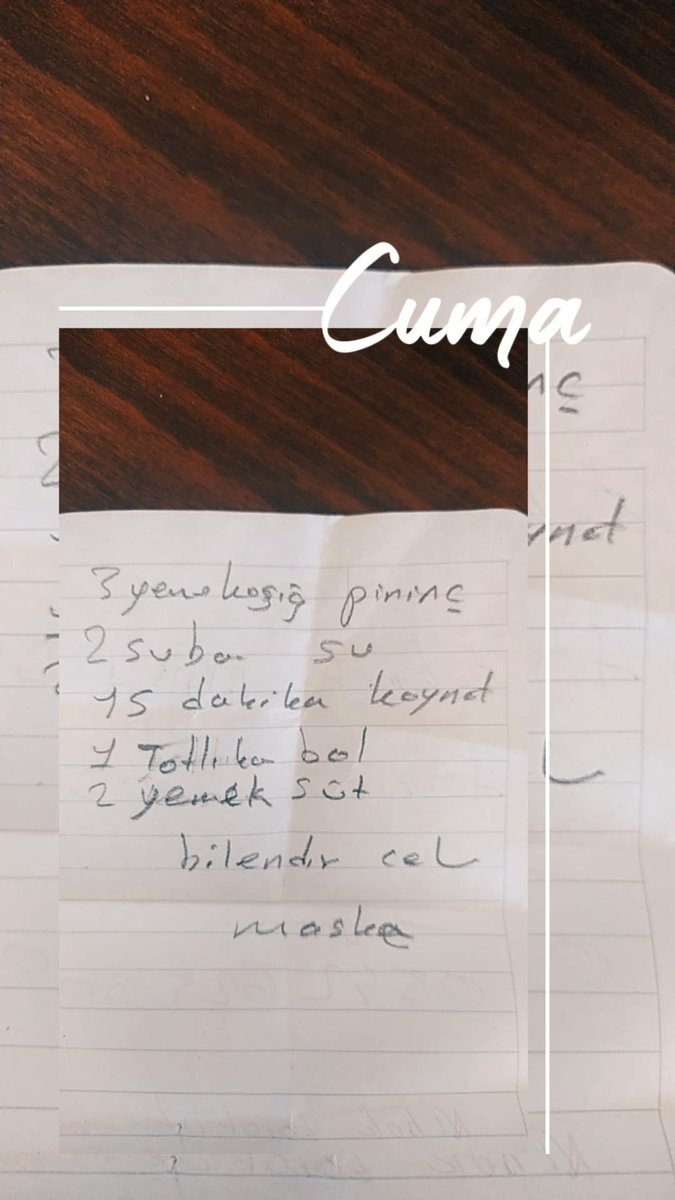 Cuma
3 yemekoşığ pirinç
2 suba su
15 dakika kaynat
1 Tatlıka bal
2 yemek süt
bilendır cel
maske